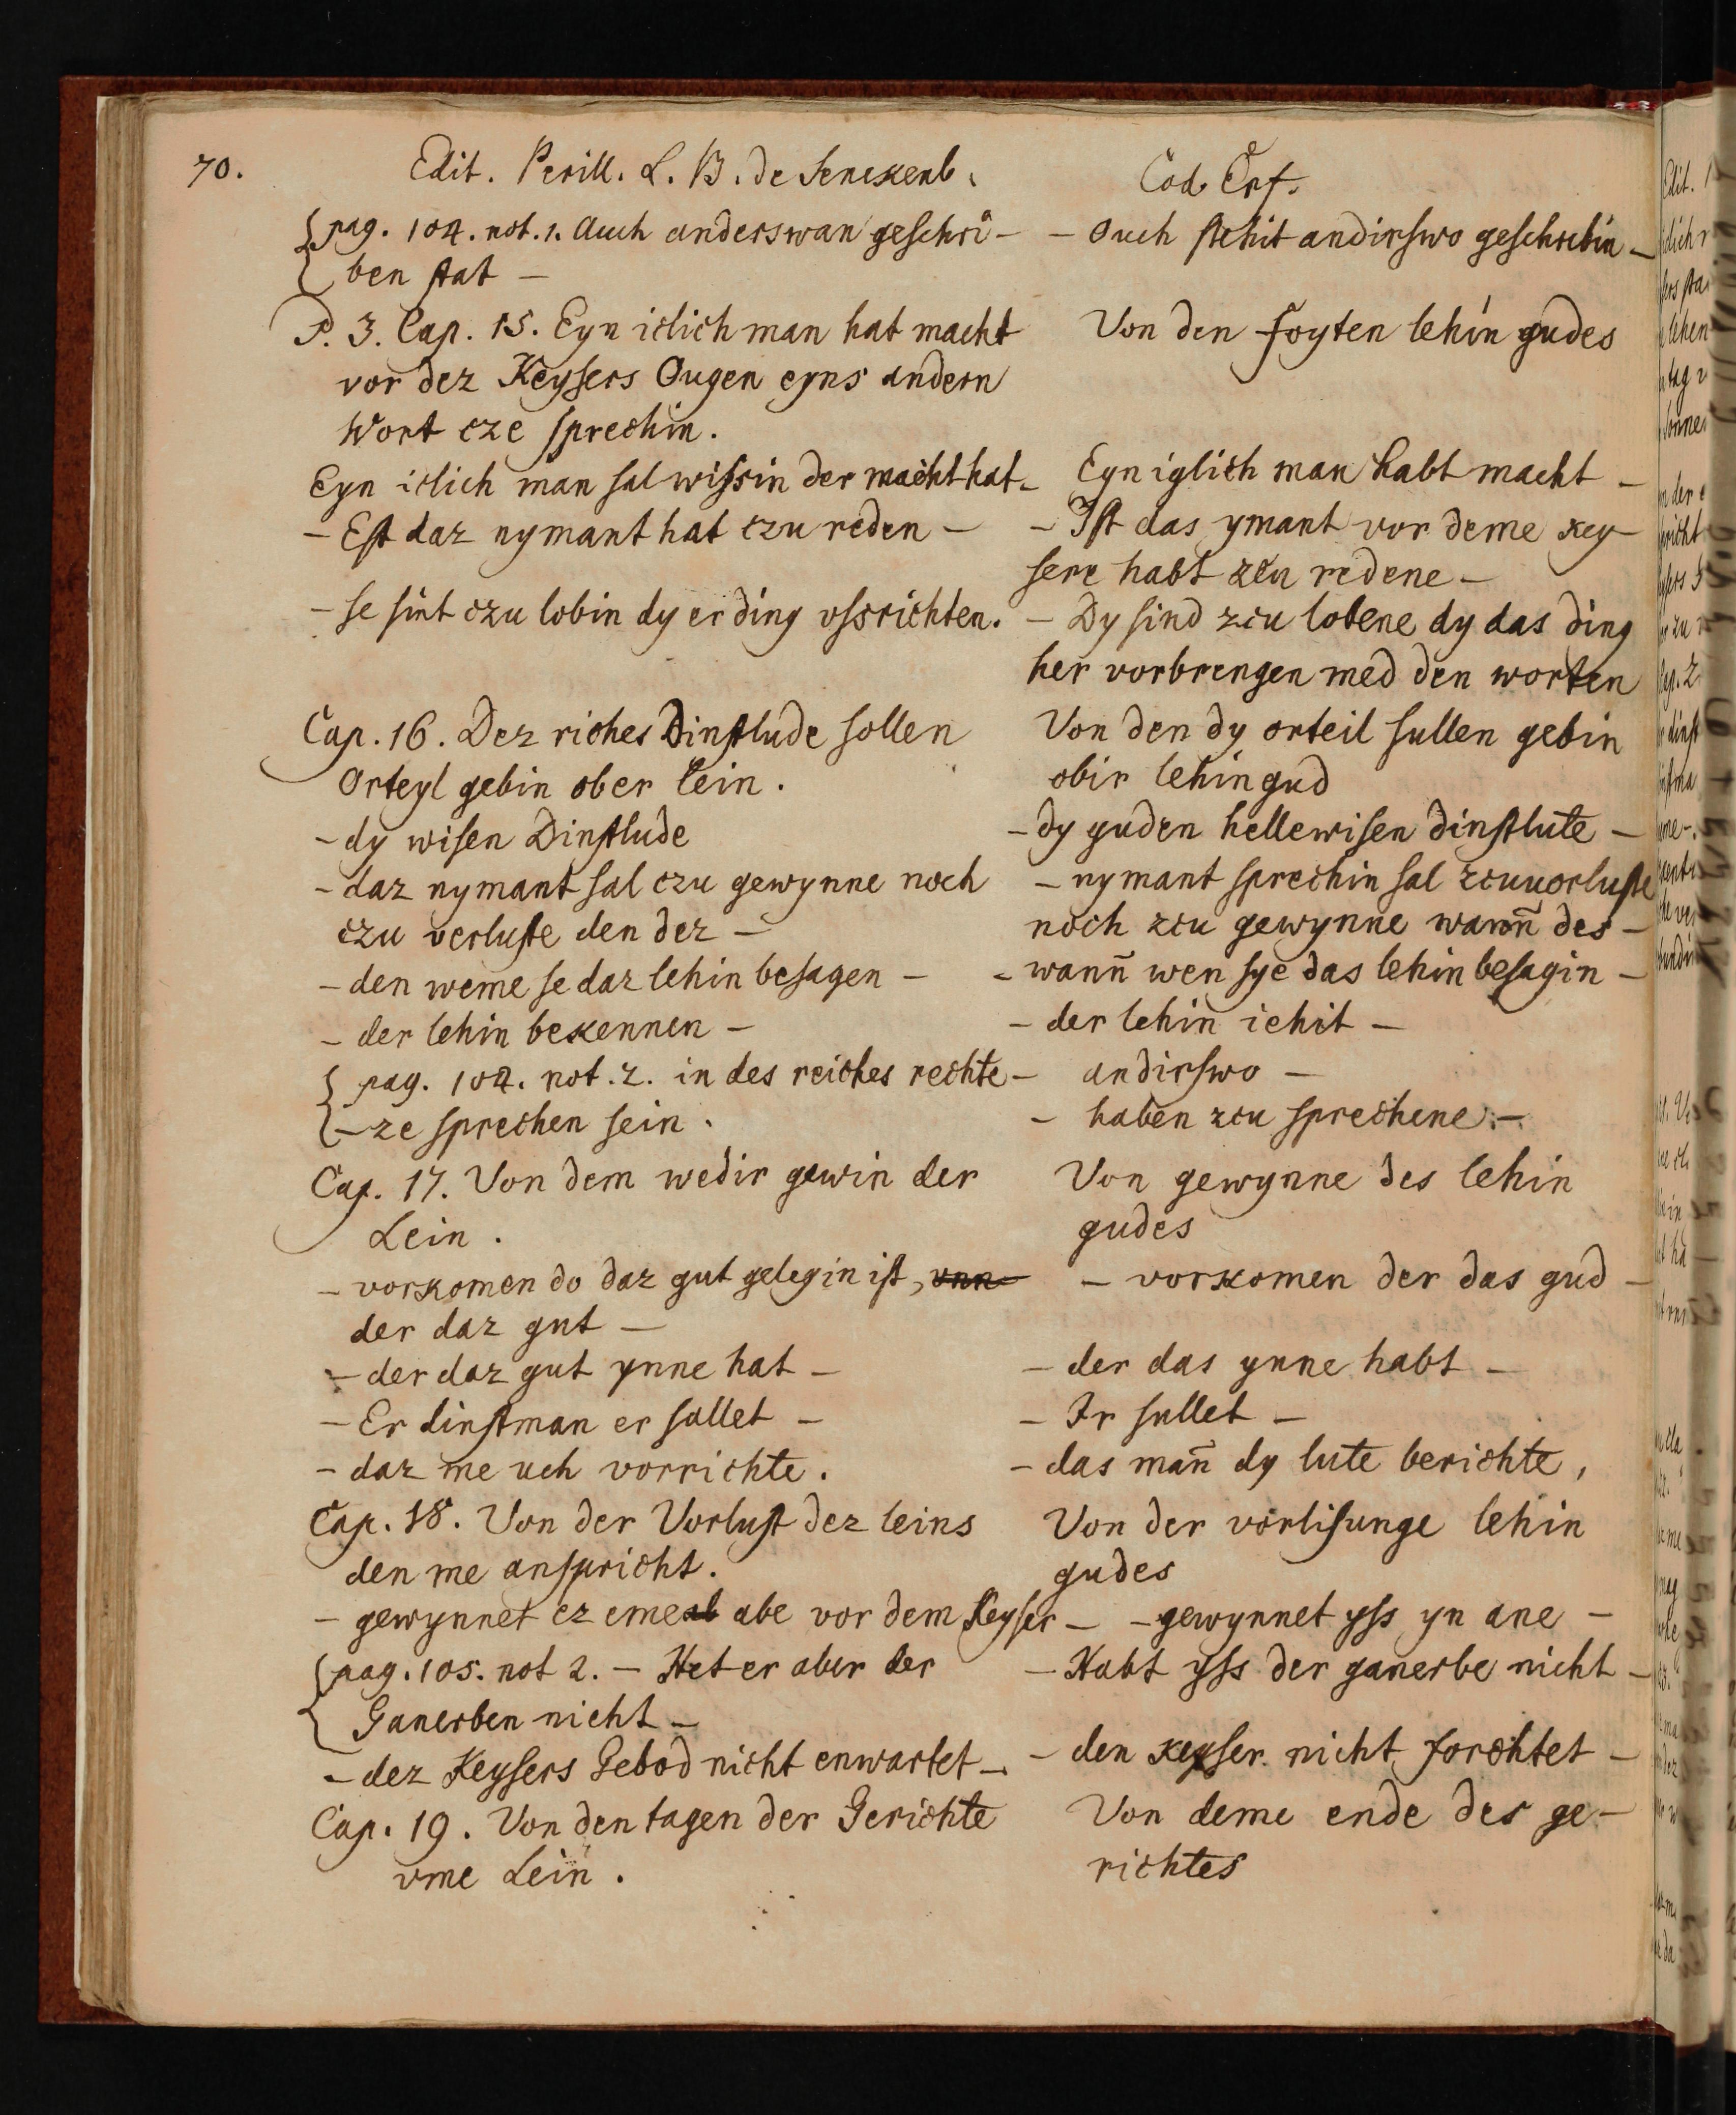 70.
Edit. Perill. L. B. de Senckenb.
{pag. 104. not. 1. Auch anderswan geschri-
ben stat -
P. 3. Cap. 15. Eyn iclich man hat macht
vor dez Keysers Ougen eyns andern
Wort cze sprechin.
Eyn iclich man sal wissin der macht hat -
- Est daz nymant hat czu reden -
- se sint czu lobin dy er ding vssrichten.
Cap. 16. Dez riches Dinstlude sollen
Orteyl gebin ober lein.
- dy wisen Dinstlude
- daz nymant sal czu gewynne noch
czu verluste den dez -
- den weme se daz lehin besagen -
- der lehin bekennen -
{pag. 104. not. 2. in des reiches rechte -
{- ze sprechen sein.
Cap. 17. Von dem wedir gewin der
Lein.
- vorkomen do daz gut gelegin ist, vnn
der daz gut -
- der daz gut ynne hat -
- Er dinstman er sullet -
- daz me uch vorrichte.
Cap. 18. Von der Vorlust dez leins
den me anspricht.
- gewynnet ez eme ab abe vor dem Keyser -
{pag. 105. not 2. - Het er aber der
Ganerben nicht -
- dez Keysers Gebod nicht enwartet -
Cap. 19. Von den tagen der Gerichte
vme Lein.
Cod. Erf.
- Ouch stehit andirswo geschrebin -
Von den foyten lehin gudes
Eyn iglich man habt macht -
- Ist das ymant vor deme key-
sere habt zcu redene -
- Dy sind zcu lobene dy das ding
her vorbrengen med den worten
Von den dy orteil sullen gebin
obir lehin gud
- dy guden hellewisen dinstlute -
- nymant sprechin sal zcuuorluste
noch zcu gewynne wann̄ des -
- wann̄ wen sye das lehin besagin -
- der lehin iehit -
andirswo -
- haben zcu sprechene. -
Von gewynne des lehin
gudes
- vorkomen der das gud -
- der das ynne habt -
- Ir sullet -
- das man̄ dy lute berichte,
Von der vorlisunge lehin
gudes
- gewynnet yss yn ane -
- Habt yss der ganerbe nicht -
- den keyser nicht forchtet -
Von deme ende des ge-
richtes